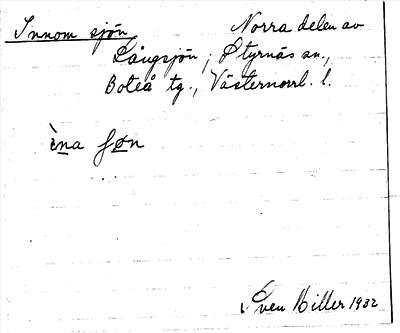 Innom sjön Norra delen av
Långsjön, Styrnäs sn.,
Boteå tg., Västernorrl. l.
ina
Sven Hiller 1932